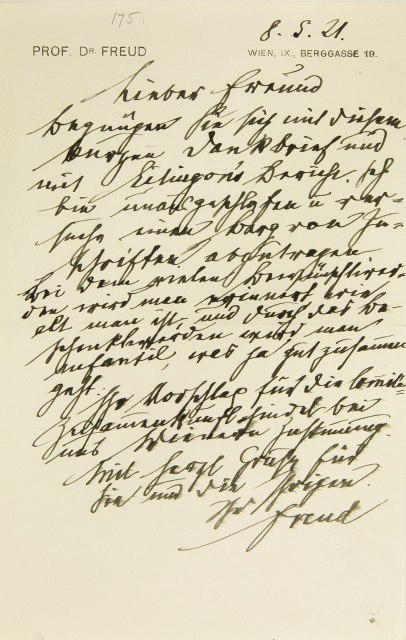 175.
8. 5. 21.
PROF. DR. FREUD
WIEN, IX., BERGGASSE 19.
Lieber Freund
begnügen Sie sich mit diesem
kurzen Dankbrief und
mit Eitingon's Bericht. Ich
bin unausgeschlafen u ver-
suche einen Berg von Zu-
schriften abzutragen
Bei dem vielen Beglückwünscht wer-
den wird man erinnert wie
alt man ist, und durch das Be-
schenktwerden wird man
infantil, was ja gut zusammen
geht.
Ihr Vorschlag für die Comité-
Zusammenkunft findet bei
uns Wienern Zustimmung.
Mit herzl Gruß für
Sie und die Ihrigen.
Ihr
Freud